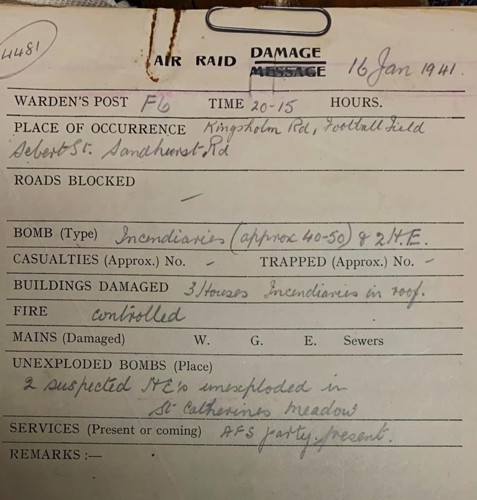 4481
AIR RAID DAMAGE
MESSAGE
16 Jan 1941.
WARDEN'S POST F6 TIME 20-15 HOURS.
PLACE OF OCCURRENCE Kingsholm Rd, Football Field
Sebert St. Sandhurst Rd
ROADS BLOCKED
-
BOMB (Type) Incendiaries (approx 40-50) & 2 H.E.
CASUALTIES (Approx.) No. - TRAPPED (Approx.) No. -
BUILDINGS DAMAGED 3 Houses Incendiaries in roof.
FIRE controlled
MAINS (Damaged) W. G. E. Sewers
UNEXPLODED BOMBS (Place)
2 suspected HE's unexploded in
St Catherines Meadow
SERVICES (Present or coming) AFS party present.
REMARKS :—